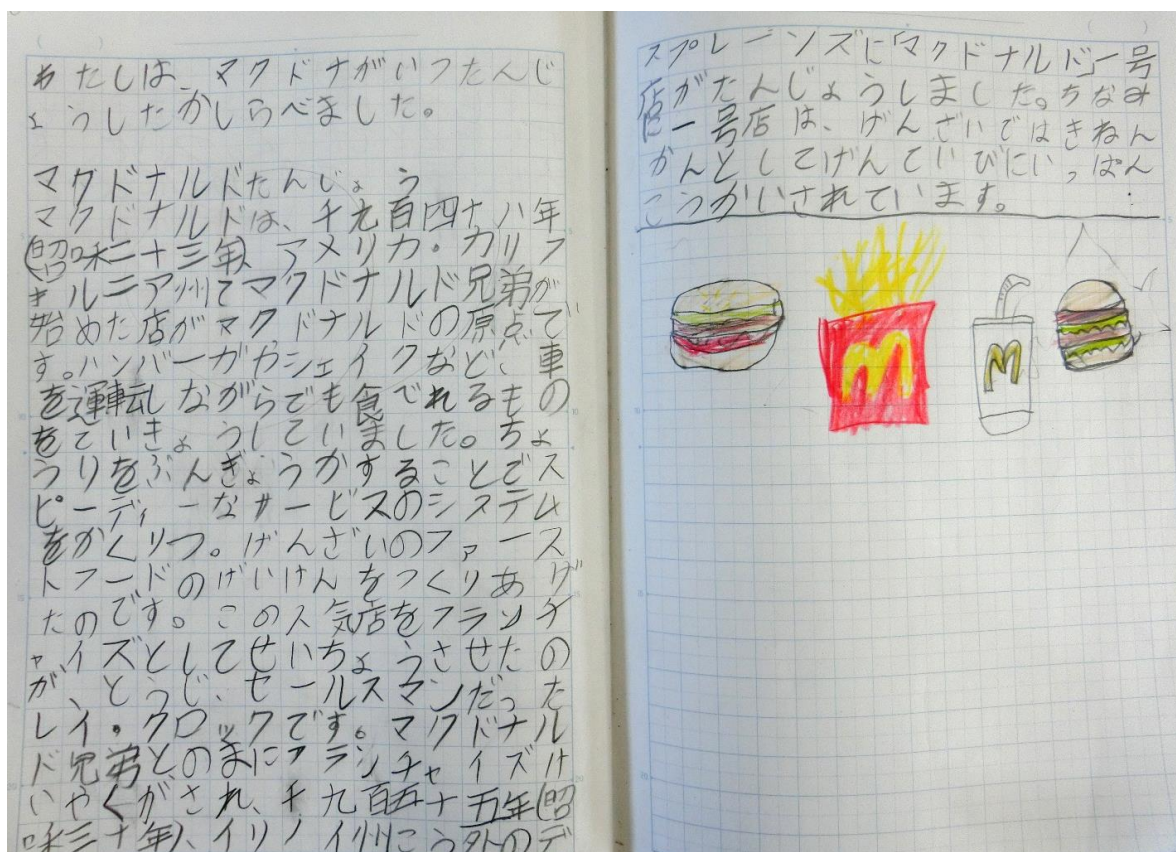 わたしは、マクドナがいつたんじ
ょうしたかしらべました。
マクドナルドたんじょう
マクドナルドは、千九百四十八年
(昭味二十三年)、アメリカ・カリフ
ォルニア州てマクドナルド兄弟が
始めた店がマクドナルドの原点で
す。ハンバーガやシェイクなど、車
を運転しながらでも食べれるもの
をていきょうしていました。ちょ
うりをぶんぎょうかすることでス
ピーディーなサービスのシステム
をかくりつ。げんざいのファース
トフードのげいけんをつくりあげ
たのです。この人気店をフランチ
ャイズとしてせいちょうさせたの
が、とうじ、セールスマンだった
レイ・クロックです。マクドナル
ド兄弟とのまにフランチャイズけ
いやくがされ、千九百五十五年(昭
味三十年)、イリノイ州こう外のデ
スプレーンズに「マクドナルド」一号
店がたんじょうしました。ちなみ
に一号店は、げんざいではきねん
かんとしてげんていびにいっぱん
こうかいされています。
M
M